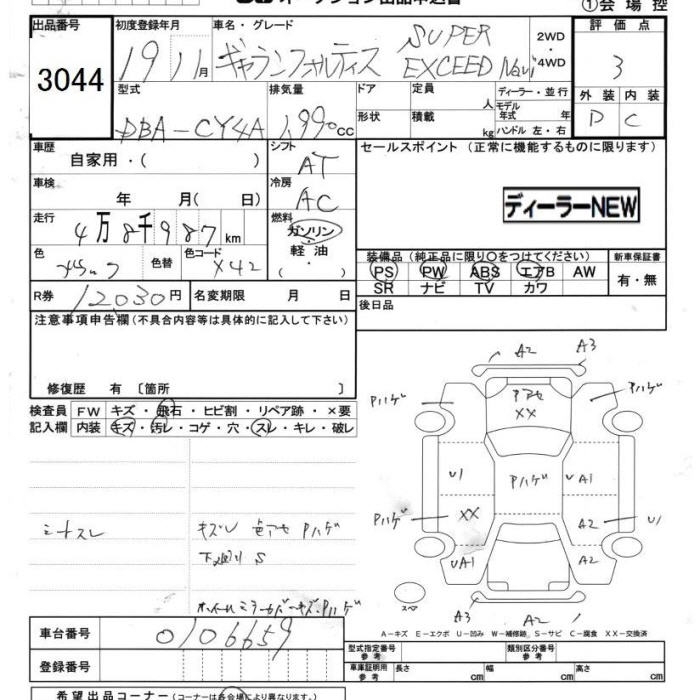 オークション出品申込書
①会場控
出品番号 初度登録年月 車名・グレード 評価点
3044 19 11月 ギャランフォルティス SUPER EXCEED Navi 2WD・4WD 3
型式 排気量 ドア 定員 人 ディーラー・並行 外装 内装
DBA-CY4A 1,990cc 形状 積載 kg モデル年式 年 ハンドル 左・右 D C
車歴 シフト セールスポイント(正常に機能するものに限ります)
自家用・( ) AT
車検 冷房
年 月( 日) AC
ディーラーNEW
走行 燃料
4万8千987km ガソリン・軽油・
色 色替 色コード 装備品(純正品に限り○をつけてください) 新車保証書
X42 PS PW ABS エアB AW 有・無
SR ナビ TV カワ
R券 12030円 名変期限 月 日 後日品
注意事項申告欄(不具合内容等は具体的に記入して下さい)
修復歴 有〔箇所 〕
検査員 FW キズ・飛石・ヒビ割・リペア跡・×要
記入欄 内装 キズ・汚レ・コゲ・穴・スレ・キレ・破レ
A2 A3
Pハゲ XX Pハゲ
U1 Pハゲ A1
Pハゲ XX A2 U1
UA1 A2
A3 A2
シートスレ キズU 色アセ Pハゲ
S
スペア
A-キズ E-エクボ U-凹み W-補修跡 S-サビ C-腐食 XX-交換済
車台番号 0106659
登録番号
型式指定番号 参考 類別区分番号 参考
車庫証明用 参考 長さ cm 幅 cm 高さ cm
希望出品コーナー(コーナーは各会場により異なります。)